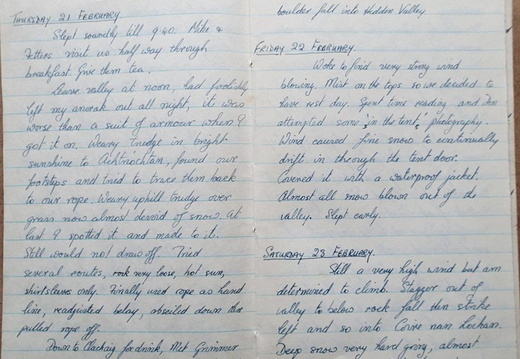 THURSDAY 21 FEBRUARY
Slept soundly till 9.20. Mike &
visit us half way through
breakfast. Give them tea.
Leave valley at noon, had foolishly
left my anorak out all night, it was
worse than a suit of armour when I
got it on. Weary trudge in bright
sunshine to Achtriochtan, found our
footsteps and tried to trace them back
to our rope. Weary uphill trudge over
grass now almost devoid of snow. At
last I spotted it and made to it.
Still would not draw off. Tried
several routes, rock very loose, hot sun,
shirtsleeves only. Finally used rope as hand
line, readjusted belay, abseiled down then
pulled rope off.
Down to Clachaig for drink, Met Grimmer
boulder fall into Hidden Valley.
FRIDAY 22 FEBRUARY.
Woke to find very strong wind
blowing. Mist on the tops so we decided to
have rest day. Spent time reading and
attempted some 'in the tent' photography.
Wind caused fine snow to continually
drift in through the tent door.
Covered it with a waterproof jacket.
Almost all snow blown out of the
valley. Slept early.
SATURDAY 23 FEBRUARY.
Still a very high wind but am
determined to climb. Stagger out of
valley to below rock fall then strike
left and so into Coire nam Lochan.
Deep snow very hard going, almost